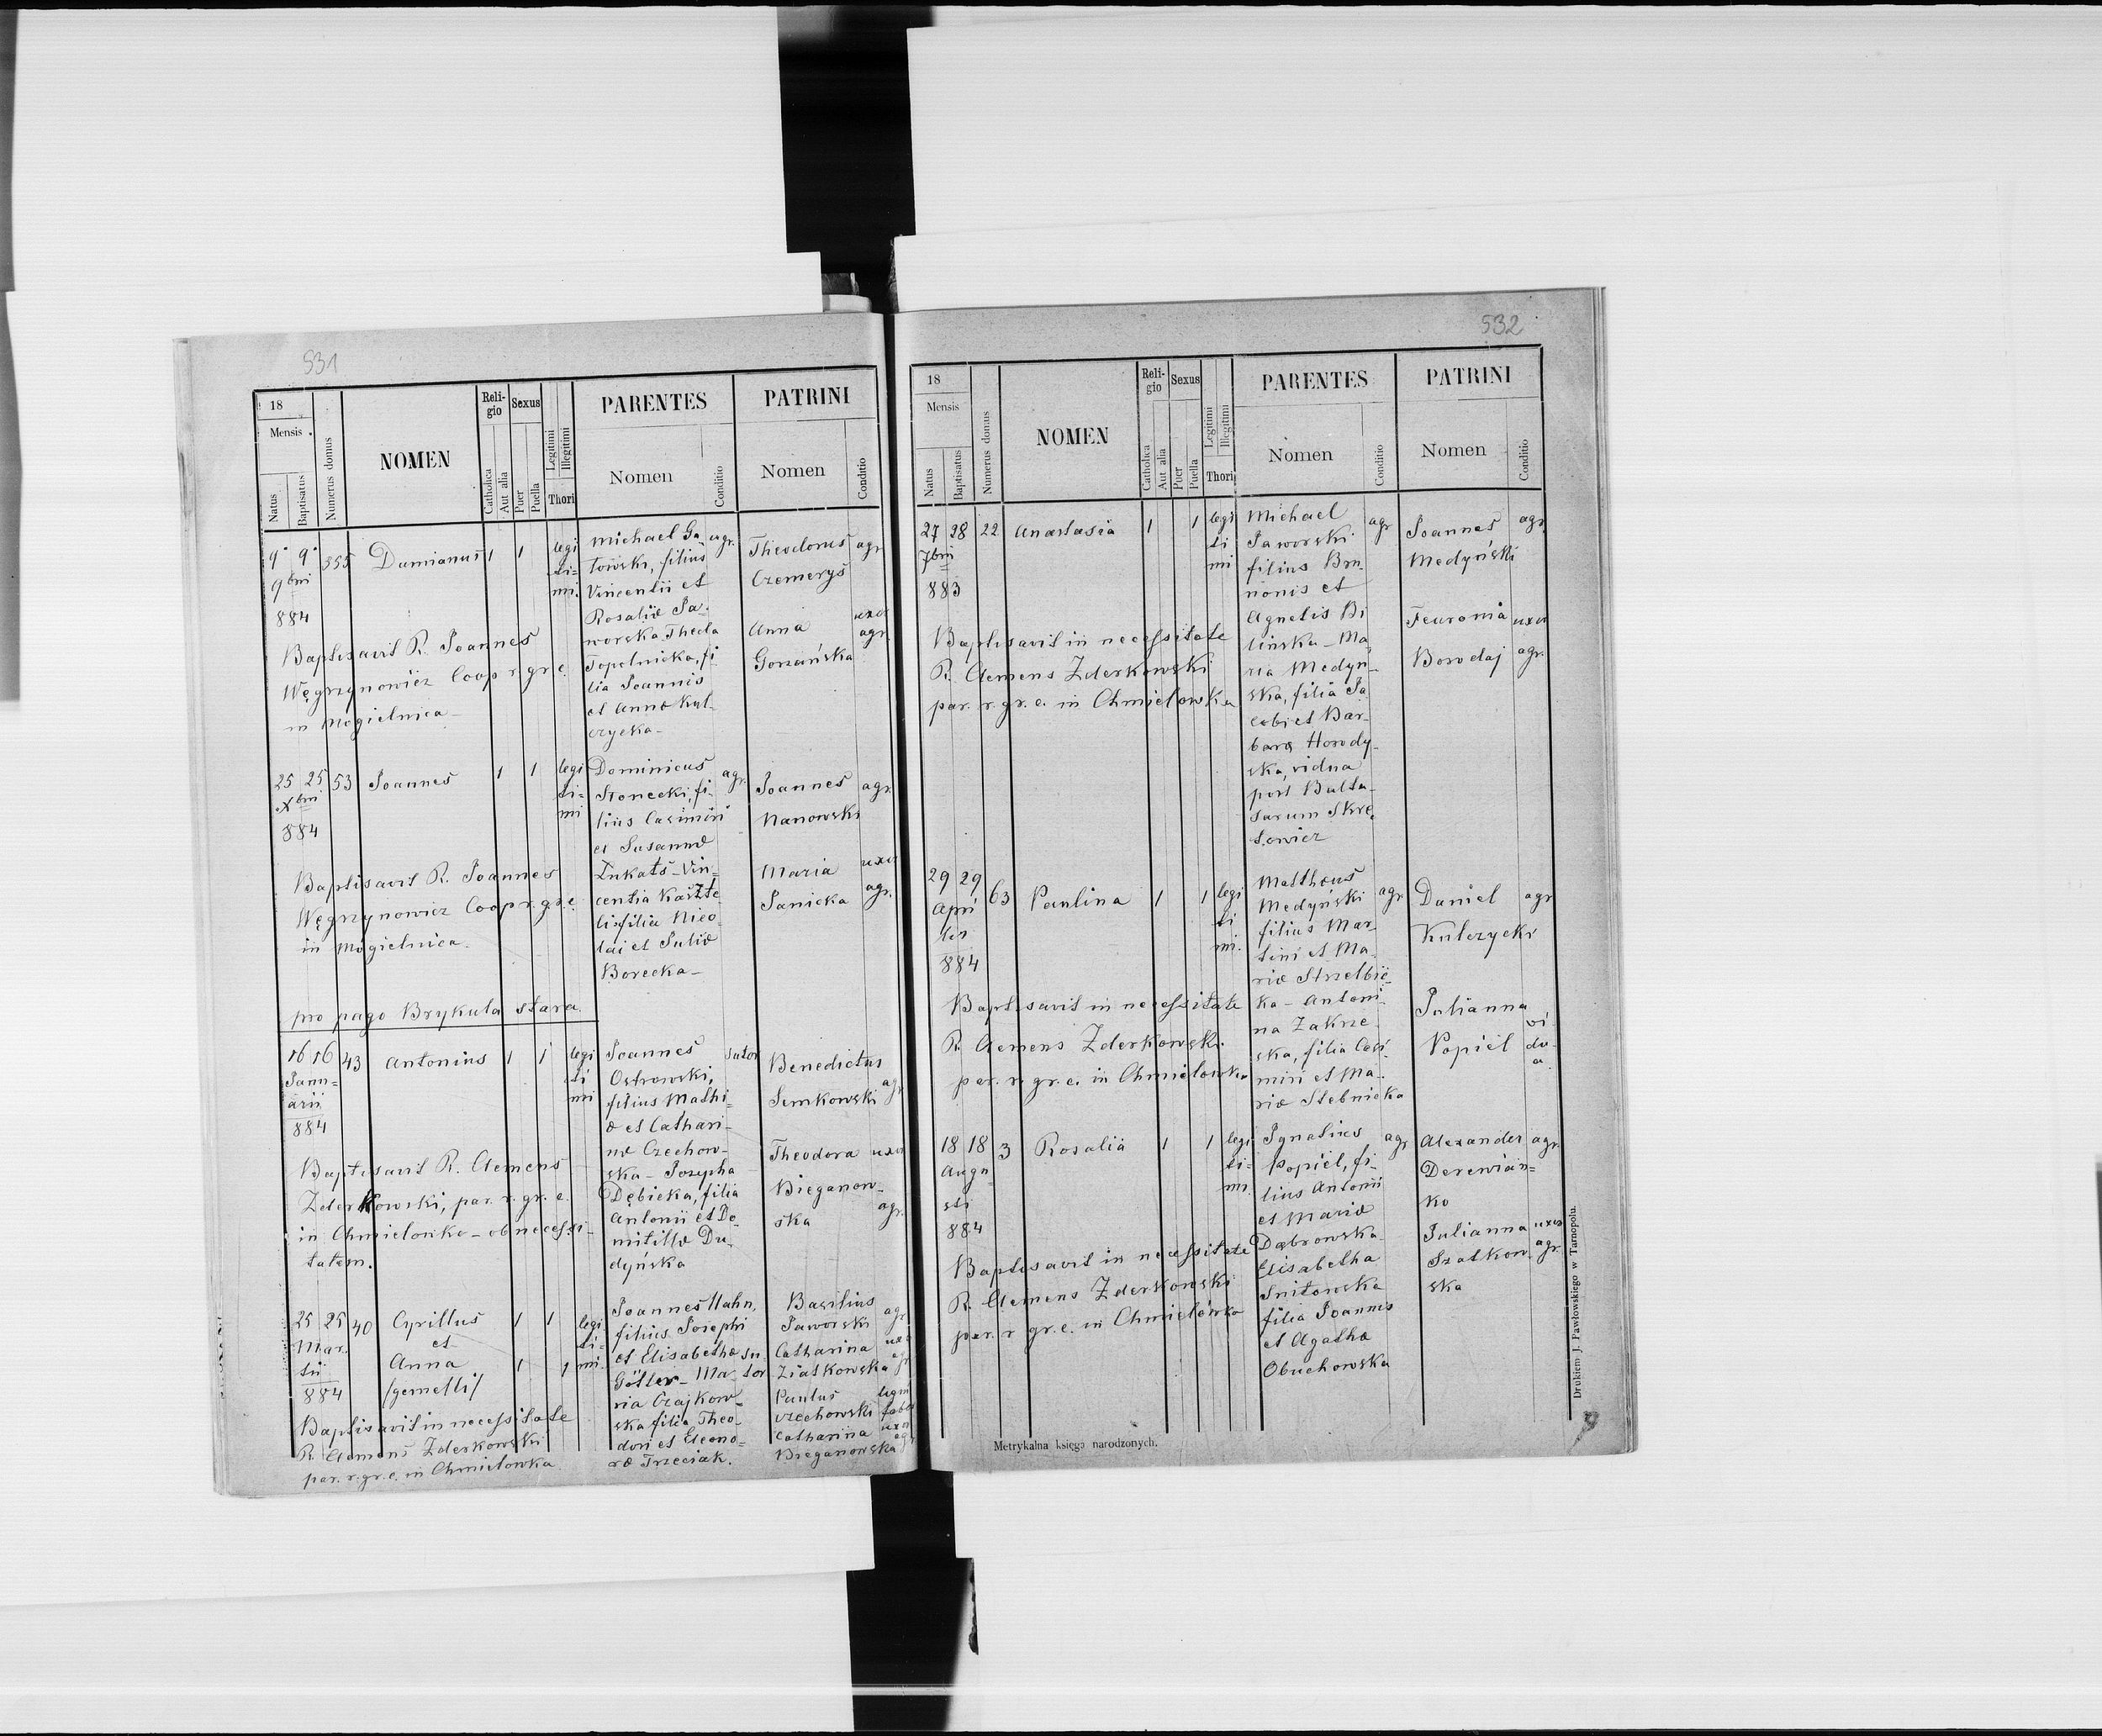 531
18
Mensis
Natus
Baptisatus
Numerus domus
NOMEN
Reli-
gio
Catholica
Aut alia
Sexus
Puer
Puella
Legitimi
Illegitimi
Thori
PARENTES
Nomen
Conditio
PATRINI
Nomen
Conditio
9 9 355 Damianus 1 1 legi
9bri ti-
884 mi.
Michael Ga agr.
łowski, filius
Vincentii et
Rosaliæ Ja-
worska Thecla
Topolnicka, fi
lia Joannis
et Annæ Kul-
czycka-
Theodorus agr
Czemerys
Anna uxor
Gorzańska agr
Baptisavit R. Joannes
Węgrzynowicz Coop r. gr. c.
in Mogielnica-
25 25 53 Joannes 1 1 legi
Xbri ti-
884 mi
Dominicus agr.
Słonecki, fi-
lius Casimiri
et Susannæ
Łukats-Vin-
centia Kaszte
lis filia Nico
lai et Juliæ
Borecka-
Joannes agr.
Nanowski
Maria uxor
Janicka agr.
Baptisavit R. Joannes
Węgrzynowicz Coop r. gr. c.
in Mogielnica.
pro pago Brykula stara
16 16 43 Antonius 1 1 legi
Janu= ti
arii mi
884
Joannes sutor
Ostrowski,
filius Mathi=
æ et Cathari-
næ Czechow-
ska-Josepha
Dębicka, filia
Antonii et Do-
mitillæ Du-
dyńska
Benedictus
Semkowski agr
Theodora uxor
Bieganow-
ska agr.
Baptisavit R. Clemens
Zderkowski, par. r. gr. c.
in Chmielowka-ob necessi-
tatem.
25 25 40 Cyrillus 1 1 legi
Mar. et ti-
tii Anna 1 1 mi.
884 /gemelli/
Joannes Hahn,
filius Josephi
et Elisabethæ su
Götler-Ma tor
ria Czajkow-
ska filia Theo-
dori et Eleono-
ræ Trzeciak.
Basilius agr
Jaworski
Catharina uxor
Ziatkowska agr
Paulus
Czechowski
Catharina uxor
Bieganowska agr
Baptisavit in necessitate
R. Clemens Zderkowski
par. r. gr. c. in Chmielowka
532
18
Mensis
Natus
Baptisatus
Numerus domus
NOMEN
Reli-
gio
Catholica
Aut alia
Sexus
Puer
Puella
Legitimi
Illegitimi
Thori
PARENTES
Nomen
Conditio
PATRINI
Nomen
Conditio
27 28 22 Anastasia 1 1 legi
7bri ti
883 mi
Michael agr
Jaworski
filius Bru
nonis et
Agnetis Bi
lińska-Ma
ria Medyn-
ska, filia Ja
cobi et Bar-
baræ Horody-
ska, vidua
post Balta-
sarum Skrę
towicz
Joannes agr.
Medyński
Feuronia uxor
Borodaj agr.
Baptisavit in necessitate
R. Clemens Zderkowski
par. r. gr. c. in Chmielowka
29 29 63 Paulina 1 1 legi
Apri ti
lis mi.
884
Mattheus
Medyński agr
filius Mar-
tini et Ma
riæ Strzelbic-
ka-Antoni-
na Zakrze
ska, filia Casi-
miri et Ma-
riæ Stebnicka
Daniel agr
Kulczycki
Julianna vi
Popiel du-
a.
Baptisavit in necessitate
R. Clemens Zderkowski
par. r. gr. c. in Chmielowka
18 18 3 Rosalia 1 1 legi
Augu ti-
sti mi.
884
Ignatius agr
Popiel, fi-
lius Antonii
et Mariæ
Dąbrowska-
Elisabetha
Snitowska
filia Joannis
et Agathæ
Obuchowska
Alexander agr.
Derewian=
ko
Julianna uxor
Szatkow- agr.
ska
Baptisavit in necessitate
R. Clemens Zderkowski
par. r. gr. c. in Chmielówka
Metrykalna księga narodzonych.
Drukiem J. Pawłowskiego w Tarnopolu.